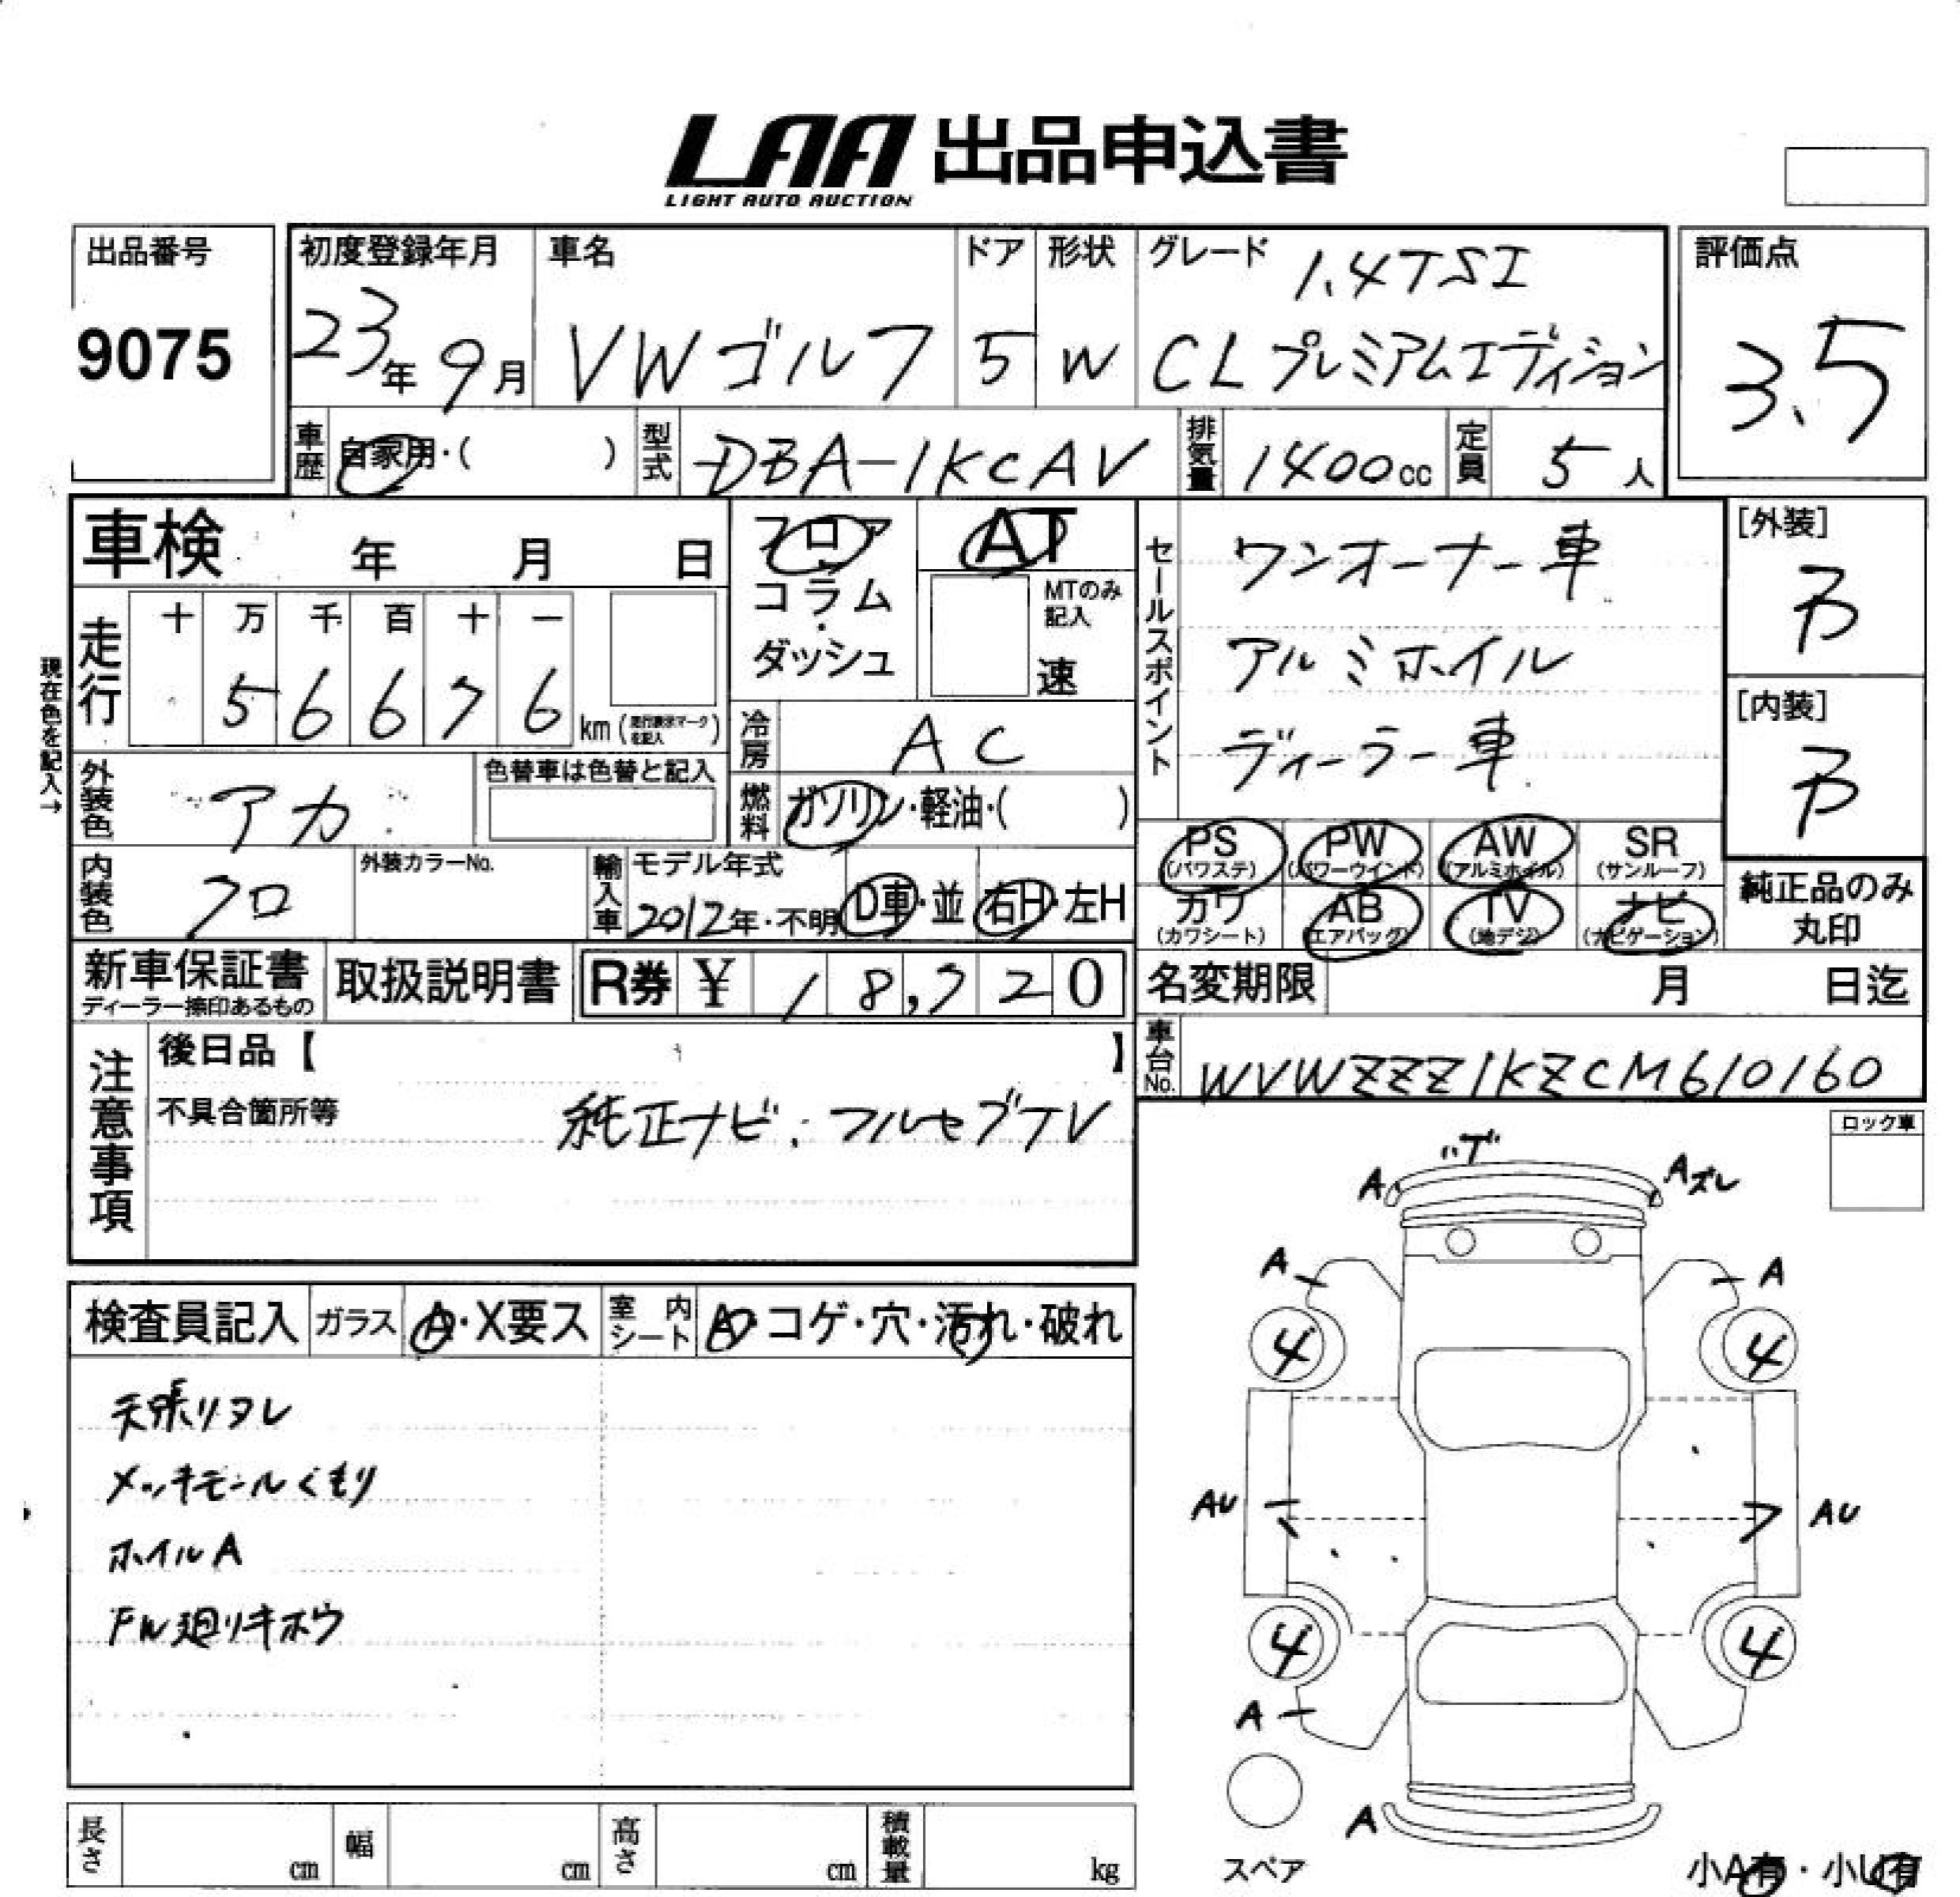 LAA 出品申込書
LIGHT AUTO AUCTION
出品番号
9075
初度登録年月
23年 9月
車名
VW ゴルフ
ドア
5
形状
W
グレード
1.4TSI
CL プレミアムエディション
評価点
3.5
車歴
自家用・( )
型式
DBA-1KCAV
排気量
1400cc
定員
5人
車検 年 月 日
現在色を記入→
走行
十 万 千 百 十 一
5 6 6 7 6 km (走行表示マークを記入)
フロア
コラム
・
ダッシュ
AT
MTのみ
記入
速
冷房
AC
燃料
ガソリン・軽油・( )
外装色
アカ
色替車は色替と記入
内装色
クロ
外装カラーNo.
輸入車
モデル年式
2012年・不明
D車・並
右H・左H
セールスポイント
ワンオーナー車
アルミホイル
ディーラー車
[外装]
[内装]
PS
(パワステ)
PW
(パワーウインド)
AW
(アルミホイル)
SR
(サンルーフ)
カワ
(カワシート)
AB
(エアバッグ)
TV
(地デジ)
ナビ
(ナビゲーション)
純正品のみ
丸印
新車保証書
ディーラー捺印あるもの
取扱説明書
R券 ¥ 18,720
名変期限 月 日迄
車台No.
WVWZZZ1KZCM610160
注意事項
後日品【 】
不具合箇所等
純正ナビ、フルセグTV
ロック車
検査員記入
ガラス
A・X要ス
室内シート
A・コゲ・穴・汚れ・破れ
天張リタレ
メッキモールくもり
ホイルA
FW廻リキホウ
A
A ズレ
A
A
4
4
AU
AU
4
4
A
A
スペア
小A有・小U有
長さ cm
幅 cm
高さ cm
積載量 kg